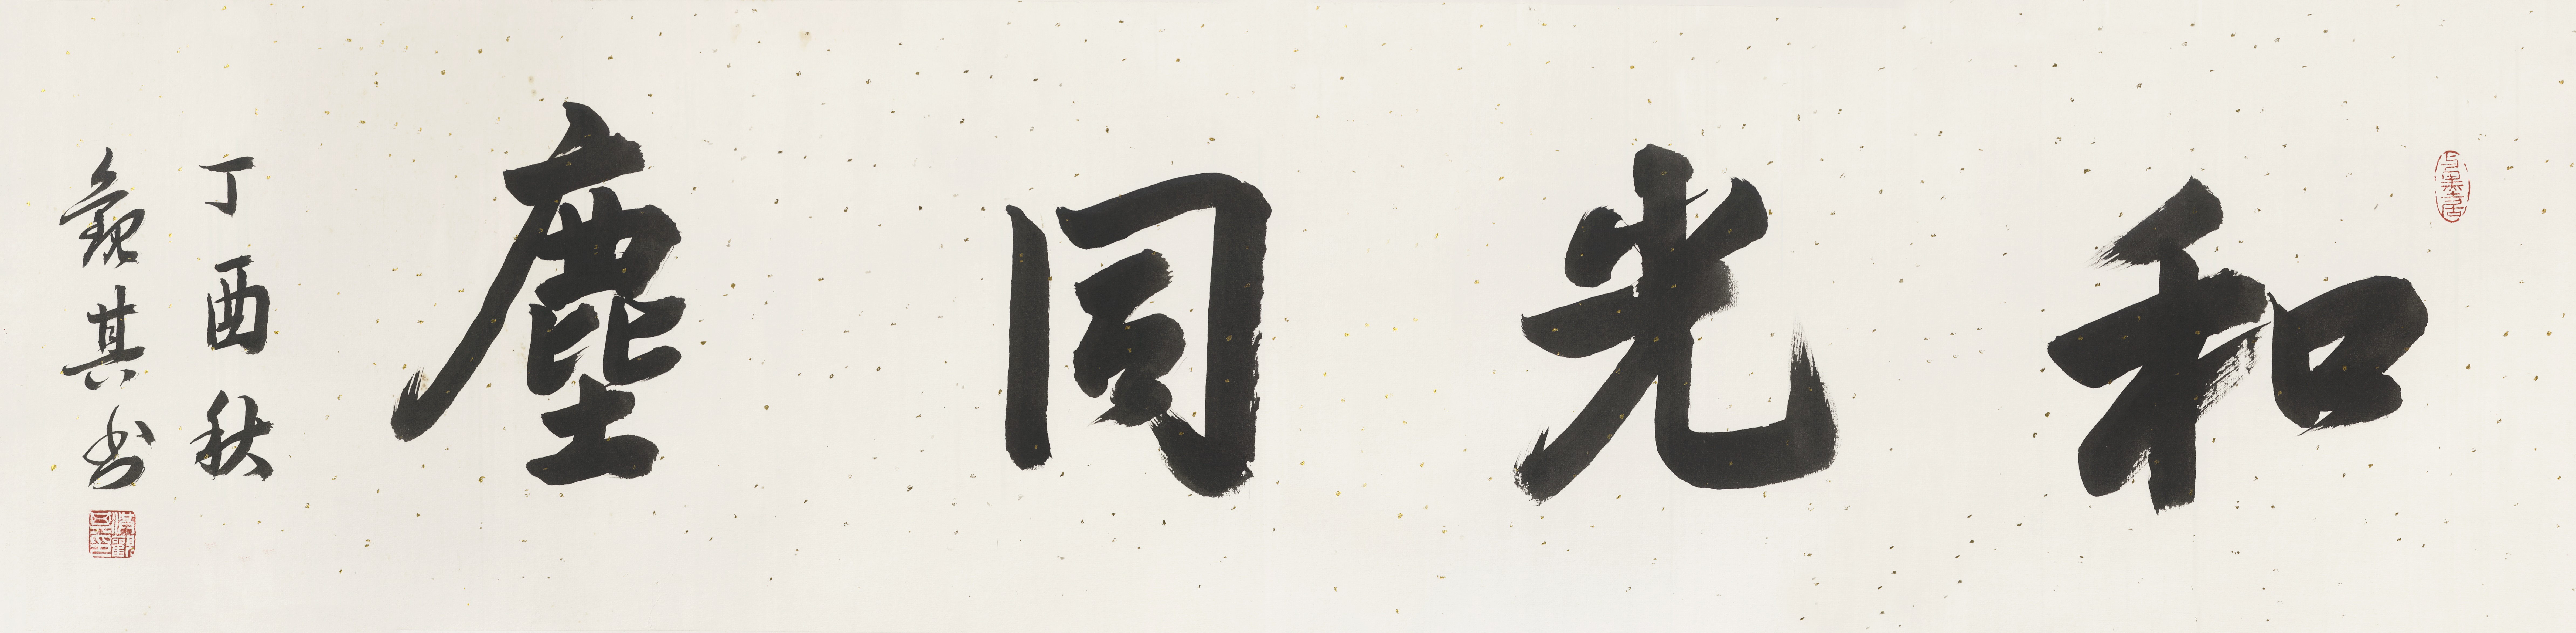 和光同塵
丁酉秋
觀其书